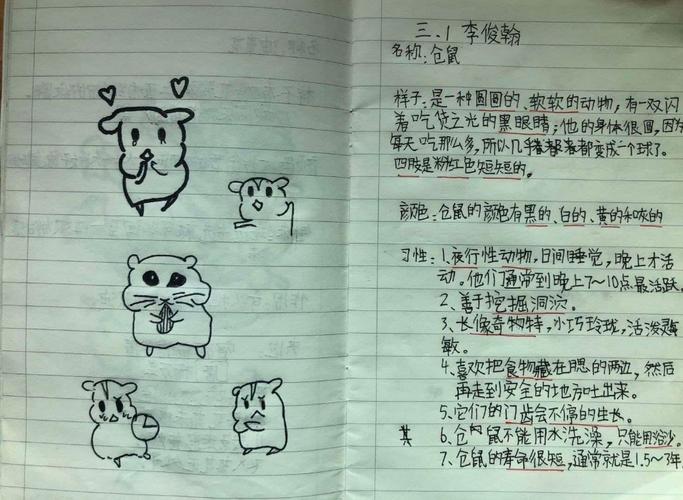 三.1 李俊翰
名称:仓鼠
样子:是一种圆圆的、软软的动物,有一双闪
着吃货之光的黑眼睛;他的身体很圆,因为
每天吃那么多,所以几乎都者都变成一个球了。
四肢是粉红色短短的。
颜色:仓鼠的颜色有黑的、白的、黄的和灰的
习性:1、夜行性动物,日间睡觉,晚上才活
动。他们通常到晚上7~10点最活跃.
2、善于挖掘洞穴。
3、长像奇物特,小巧玲珑,活泼灵
敏。
4、喜欢把食物藏在腮的两边,然后
再走到安全的地方吐出来。
5、它们的门齿会不停的生长。
其 6、仓鼠不能用水洗澡,只能用浴沙。
7、仓鼠的寿命很短,通常就是1.5~3年.